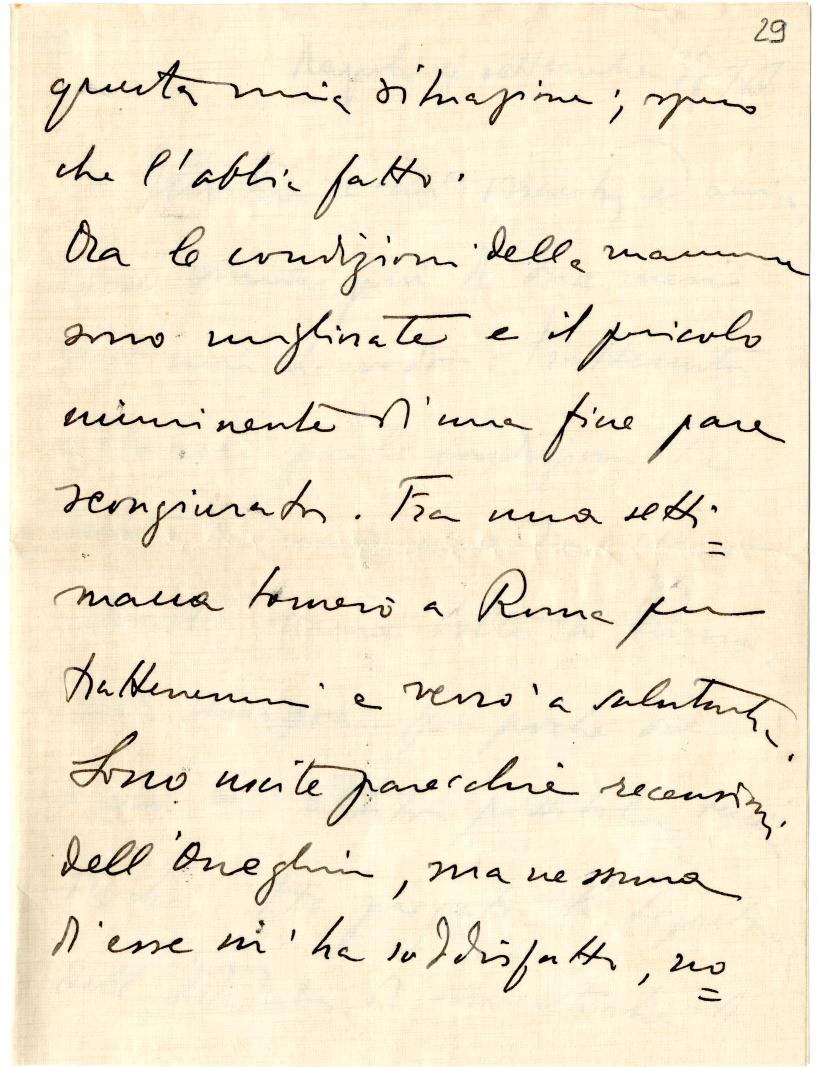 29
questa mia situazione; spero
che l'abbia fatto.
Ora le condizioni della mamma
sono migliorate e il pericolo
imminente di una fine pare
scongiurato. Fra una setti=
mana tornerò a Roma per
trattenermi e verrò a salutarla.
Sono uscite parecchie recensioni
dell'Oneghin, ma nessuna
di esse m'ha soddisfatto, no=